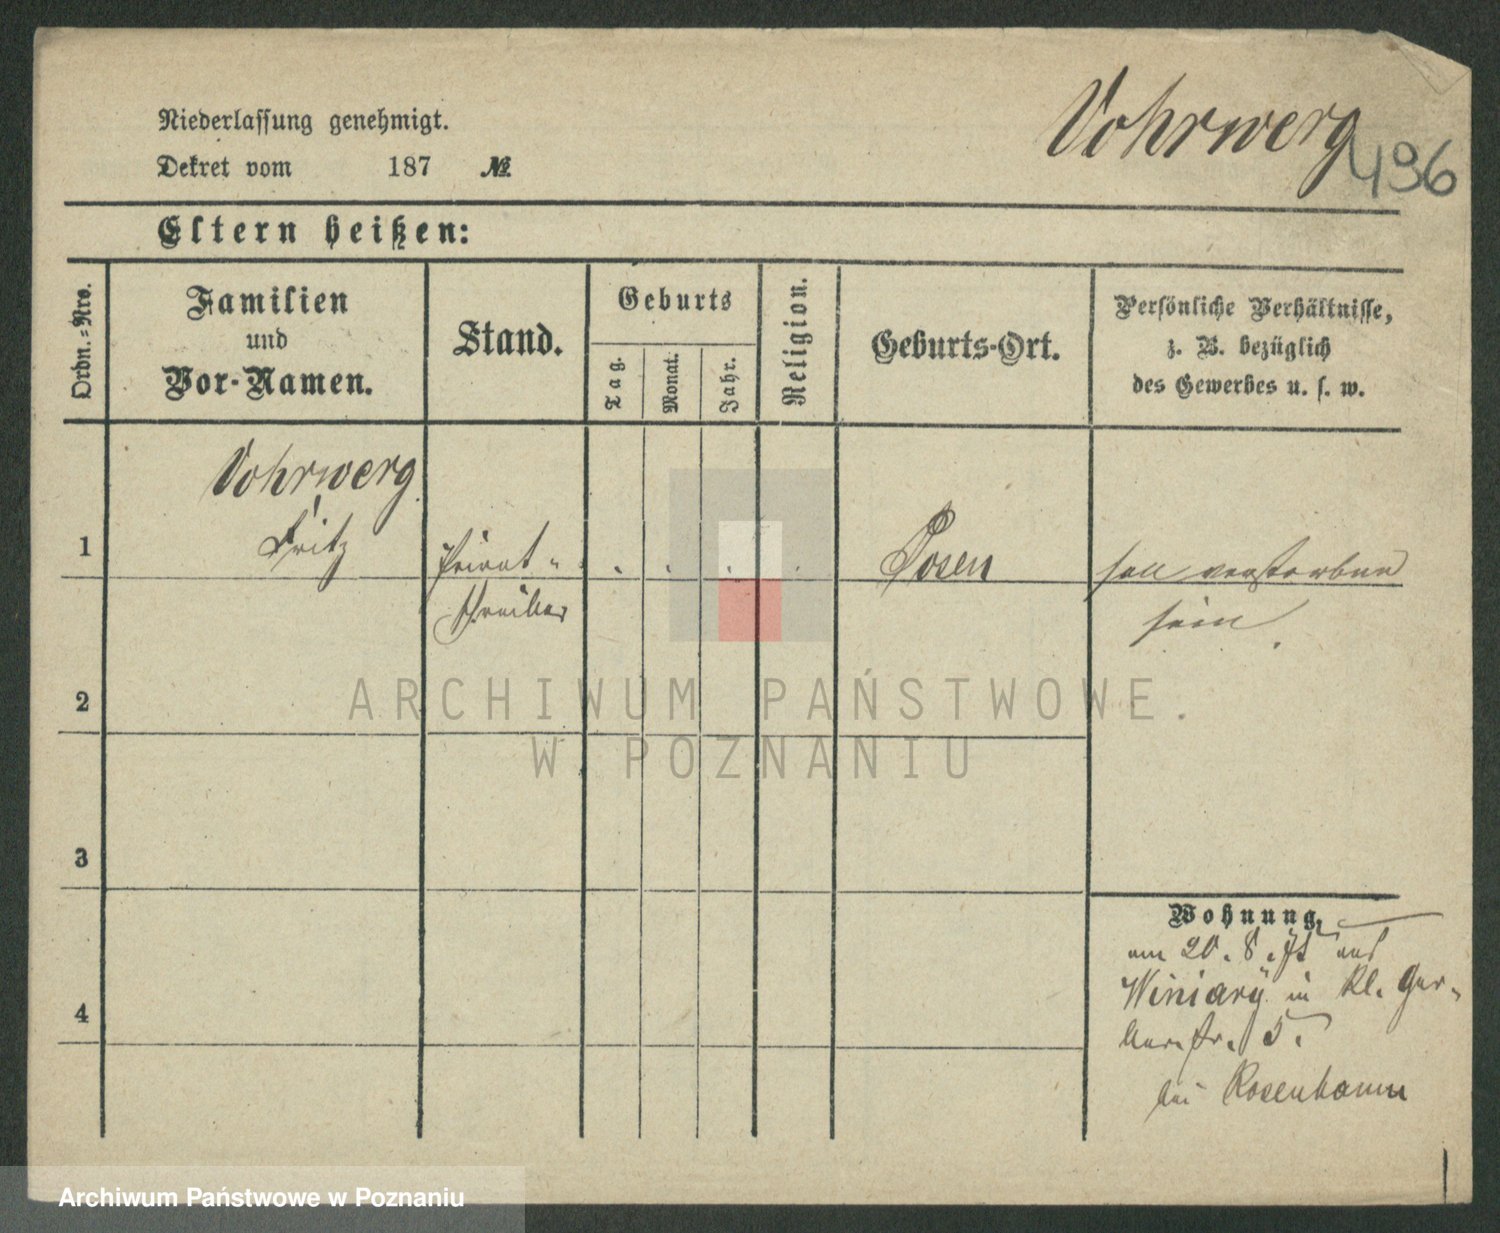 Vohrwerg
496
Niederlassung genehmigt.
Dekret vom 187 №
Eltern heißen:
Ordn.-Nro.
Familien
und
Vor-Namen.
Stand.
Geburts
Tag.
Monat.
Jahr.
Religion.
Geburts-Ort.
Persönliche Verhältnisse,
z. B. bezüglich
des Gewerbes u. s. w.
1
Vohrwerg
Fritz
Privat-
schreiber
Posen
soll verstorben
sein.
2
3
4
Wohnung,
am 20. 8. 75 aus
Winiary in Kl. Ger-
berstr. 5.
bei Rosenbaum
ARCHIWUM PAŃSTWOWE
W POZNANIU
Archiwum Państwowe w Poznaniu